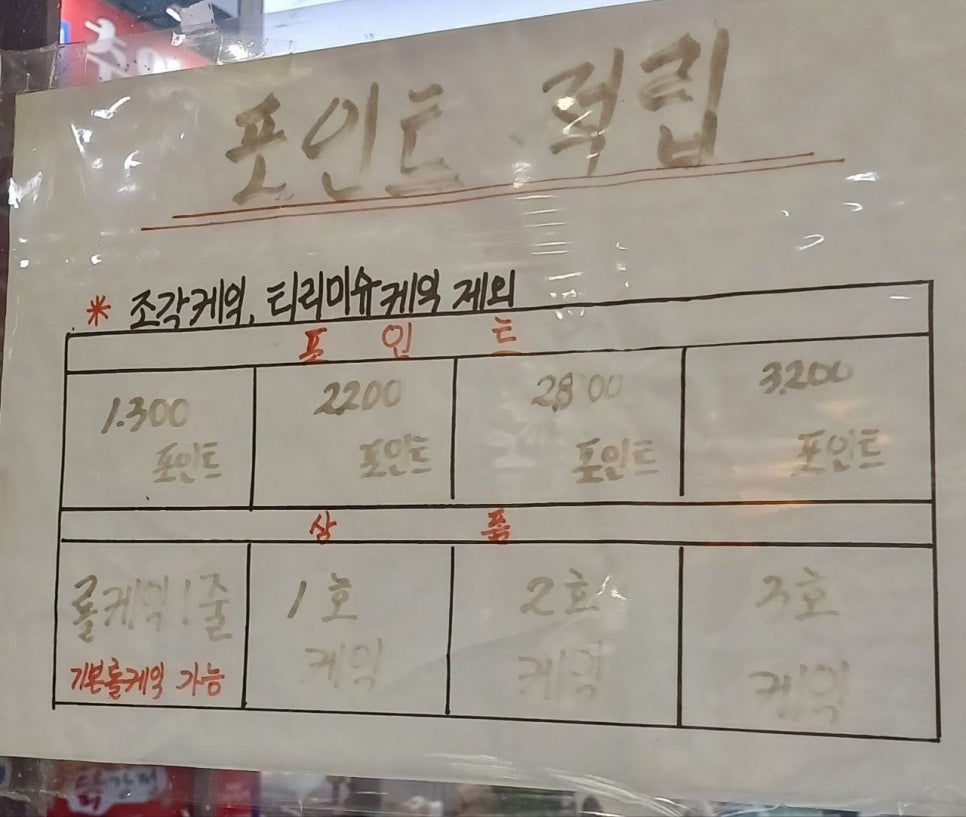 포인트 적립
* 조각케익, 티라미슈케익 제외
포 인 트
1.300 포인트
2,200 포인트
2,800 포인트
3,200 포인트
상 품
롤케익 1줄
기본롤케익 가능
1호 케익
2호 케익
3호 케익